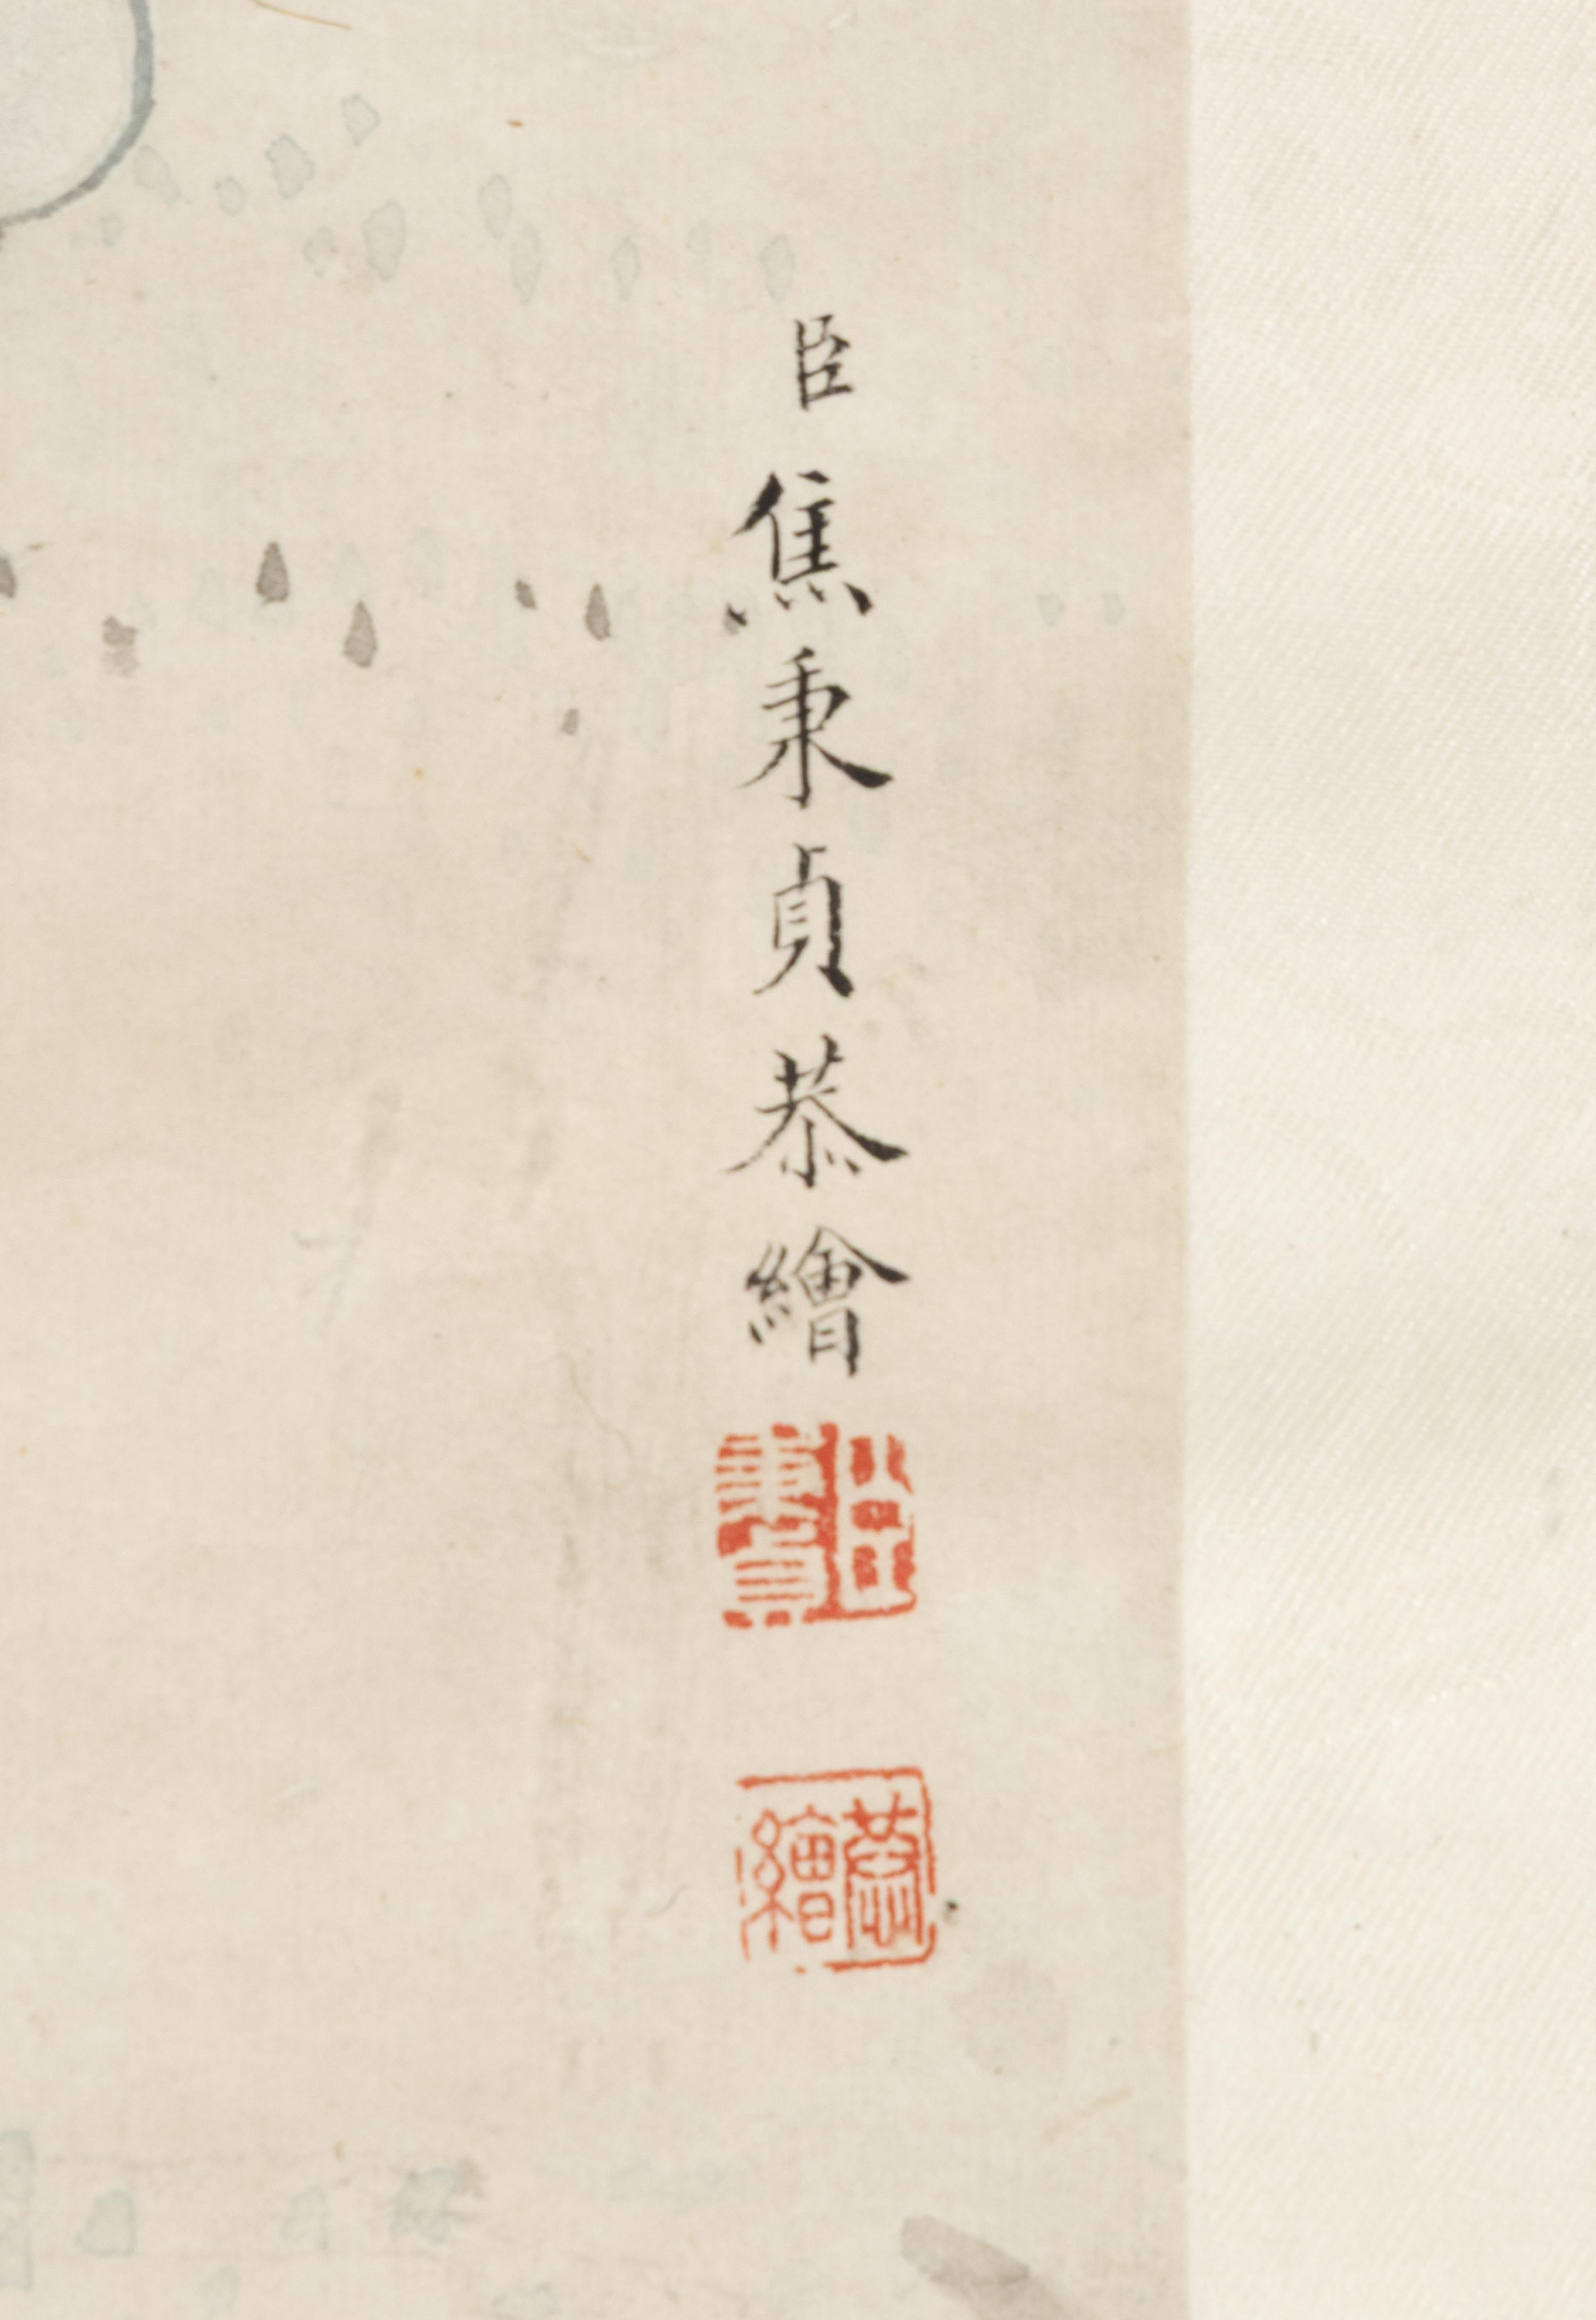 臣焦秉貞恭繪
臣秉貞
恭繪